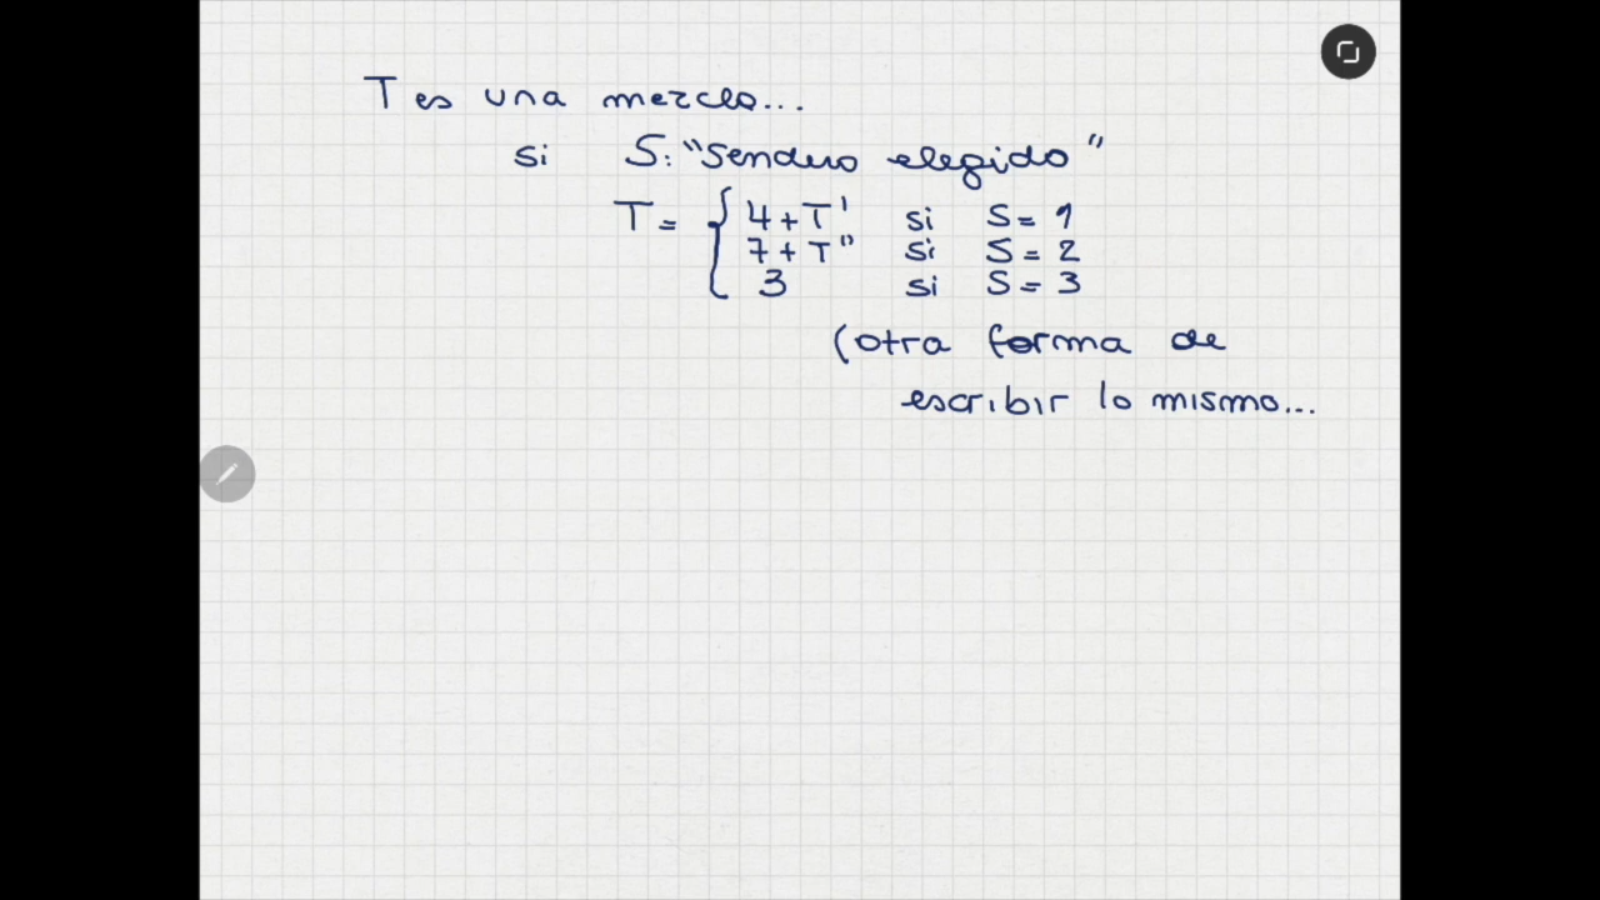 T es una mezcla...
si S: "Sendero elegido"
T = { 4 + T' si S = 1
7 + T" si S = 2
3 si S = 3
(otra forma de
escribir lo mismo...